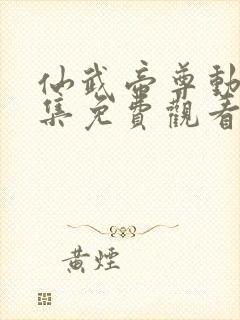 仙武帝尊動
集免費觀看
黃煙